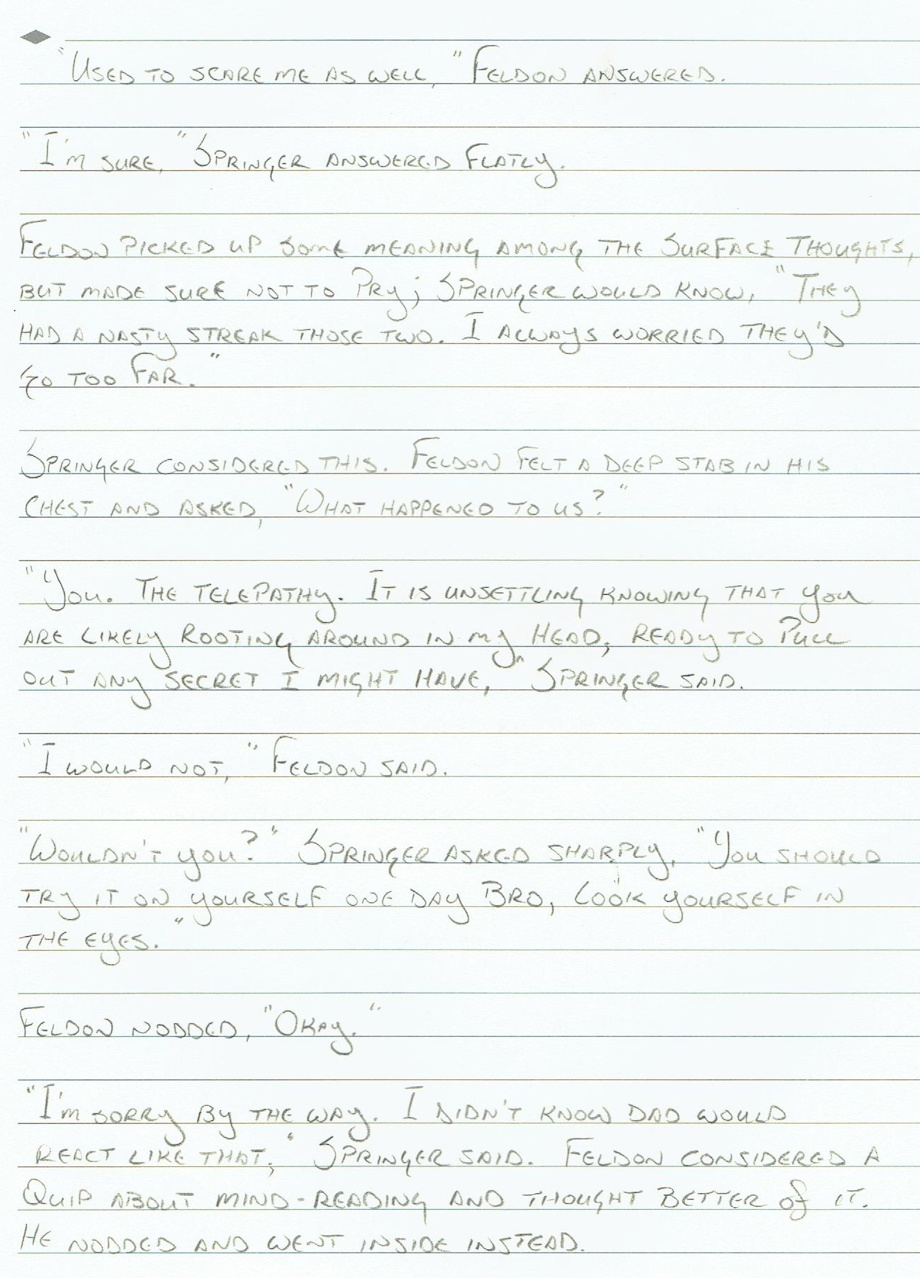 "Used to scare me as well," Feldon answered.
"I'm sure," Springer answered flatly.
Feldon picked up some meaning among the surface thoughts,
but made sure not to pry; Springer would know, "They
had a nasty streak those two. I always worried they'd
go too far."
Springer considered this. Feldon felt a deep stab in his
chest and asked, "What happened to us?"
"You. The telepathy. It is unsettling knowing that you
are likely rooting around in my head, ready to pull
out any secret I might have," Springer said.
"I would not," Feldon said.
"Wouldn't you?" Springer asked sharply, "You should
try it on yourself one day Bro, look yourself in
the eyes."
Feldon nodded, "Okay."
"I'm sorry by the way. I didn't know Dad would
react like that," Springer said. Feldon considered a
quip about mind-reading and thought better of it.
He nodded and went inside instead.